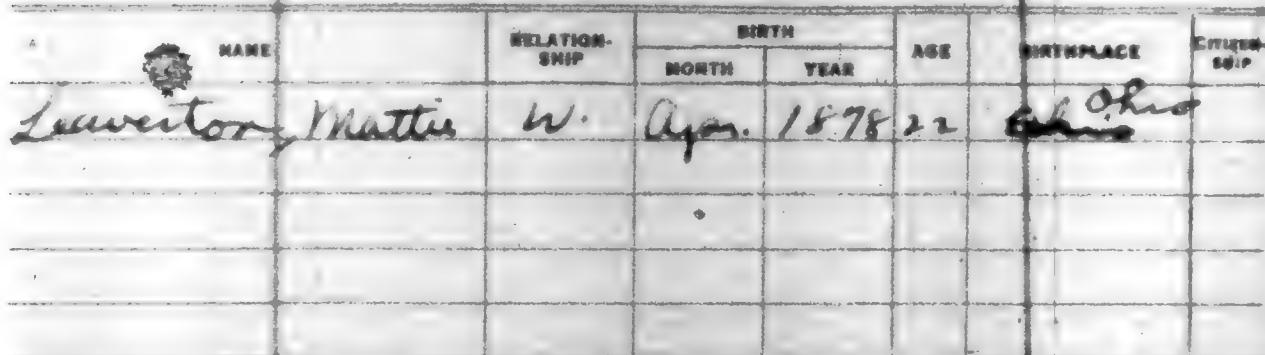 NAME RELATION-SHIP BIRTH MONTH YEAR AGE BIRTHPLACE CITIZEN-SHIP
Leaverton, Mattie W. Apr. 1878 22 Ohio